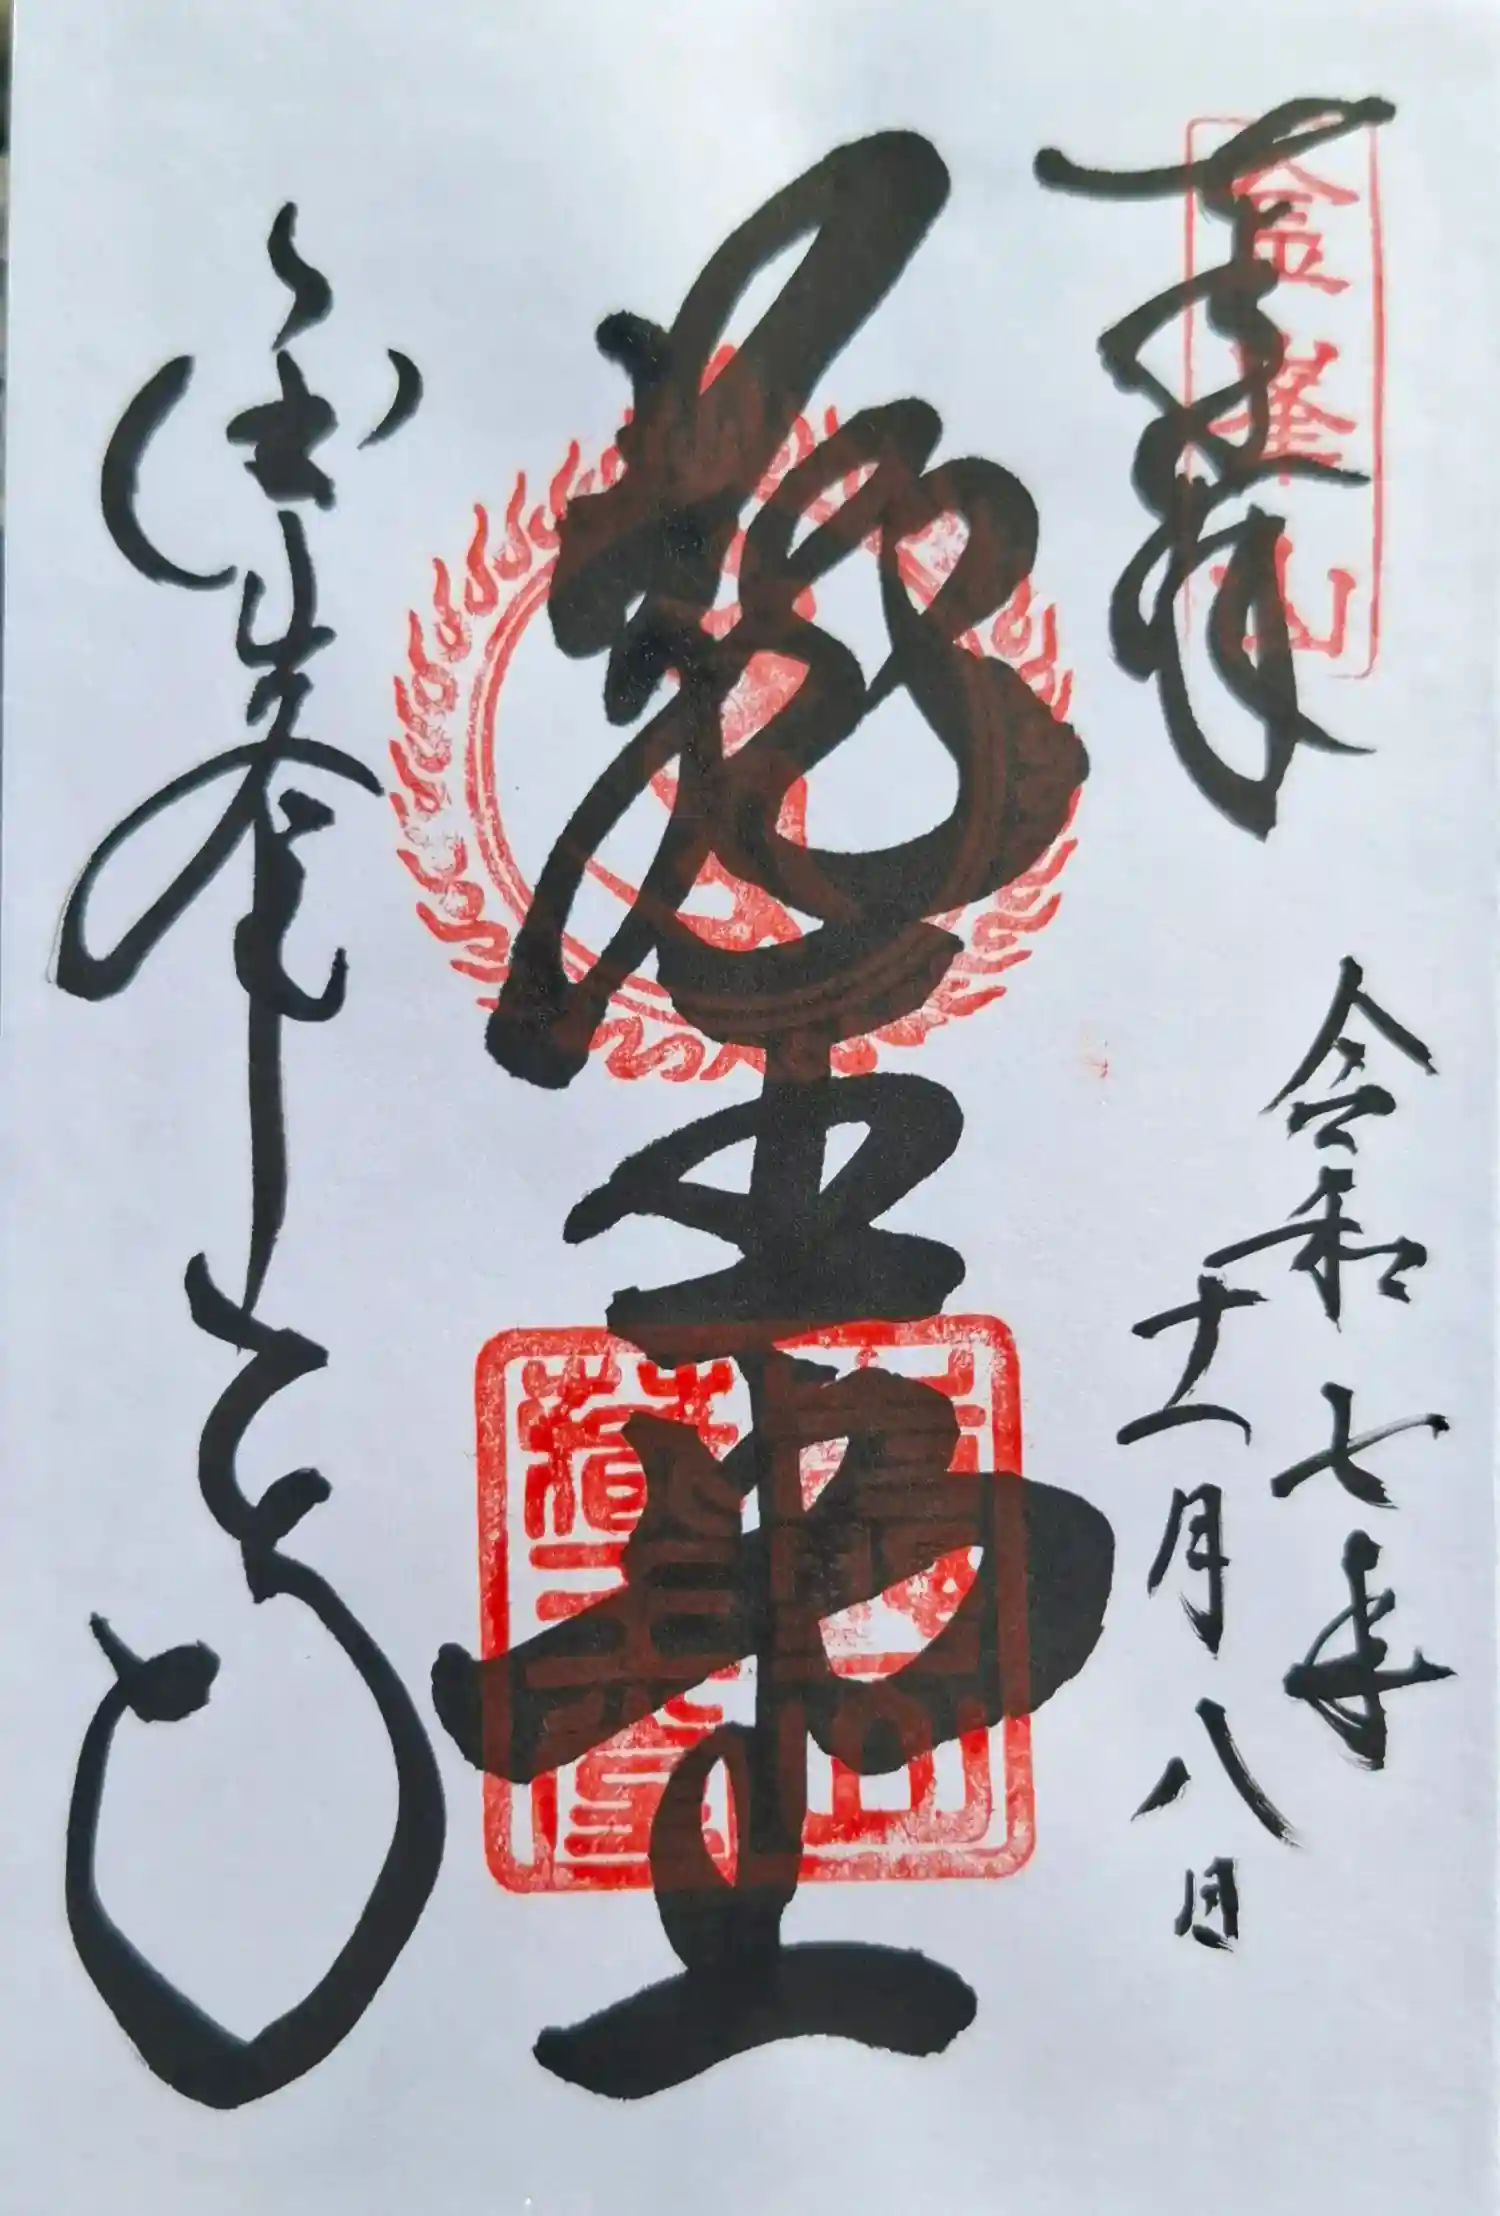 奉拝
金峯山
令和七年
十一月八日
蔵王堂
金峯山寺